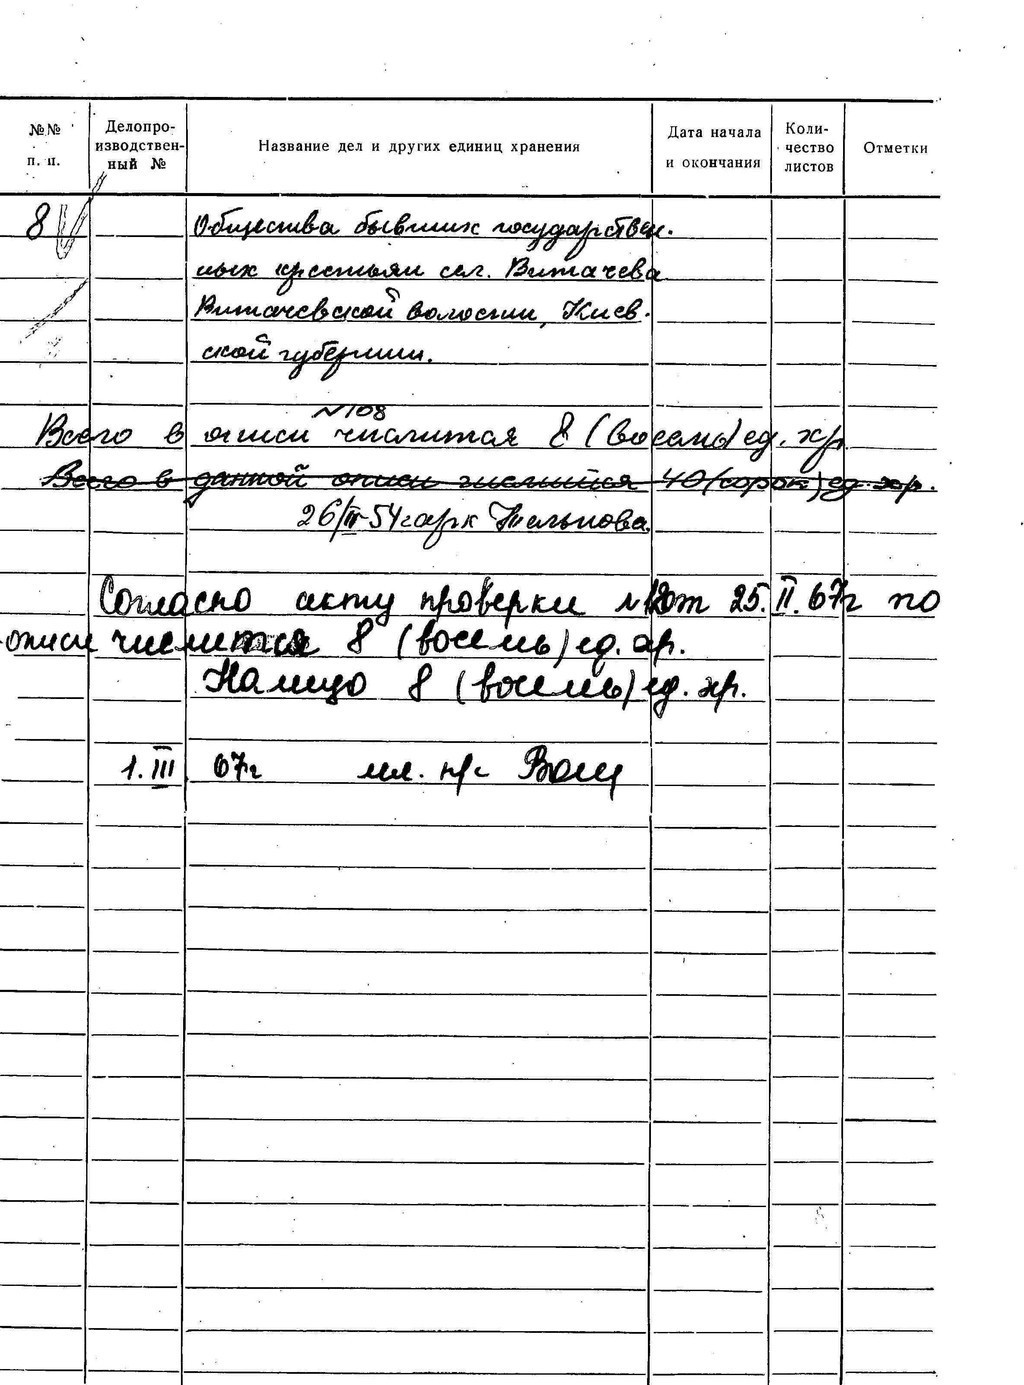 №№ п. п. Делопро-изводствен-ный № Название дел и других единиц хранения Дата начала и окончания Коли-чество листов Отметки
8 Общества бывших государствен-
ных крестьян сел. Витачева
Витачевской волости, Киев-
ской губернии.
№108
Всего в описи числится 8 (восемь) ед. хр
Всего в данной описи числится 40 (сорок) ед. хр.
26/III-54г арх
Согласно акту проверки № от 25.II.67г по
описи числится 8 (восемь) ед. хр.
Налицо 8 (восемь) ед. хр.
1.III 67г мл. н/с